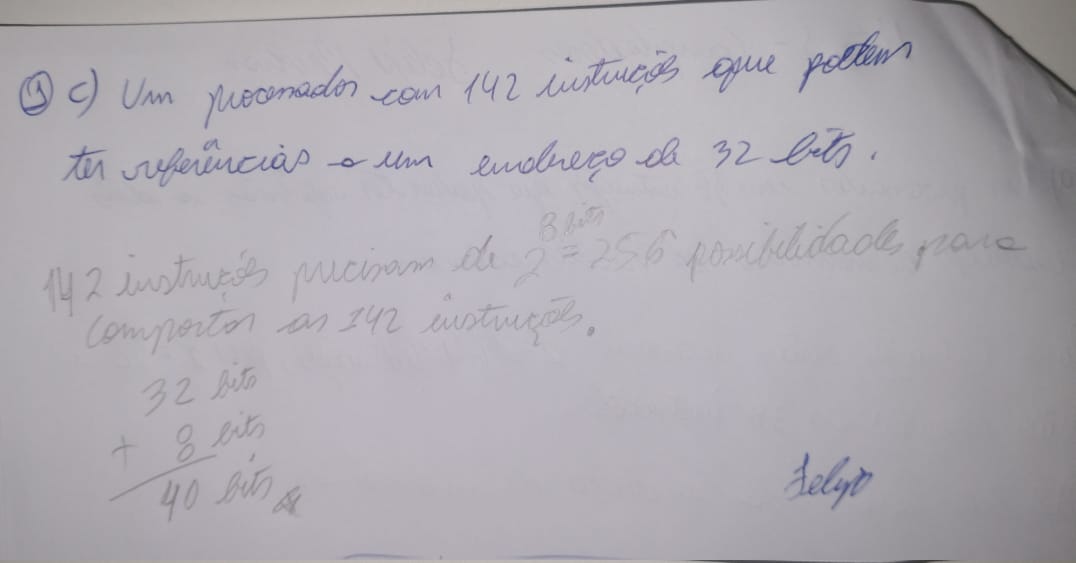 ① c) Um processador com 142 instruções que podem
ter referências a um endereço de 32 bits.
142 instruções precisam de 2^8 bits = 256 possibilidades para
comportar as 142 instruções.
32 bits
+ 8 bits
40 bits